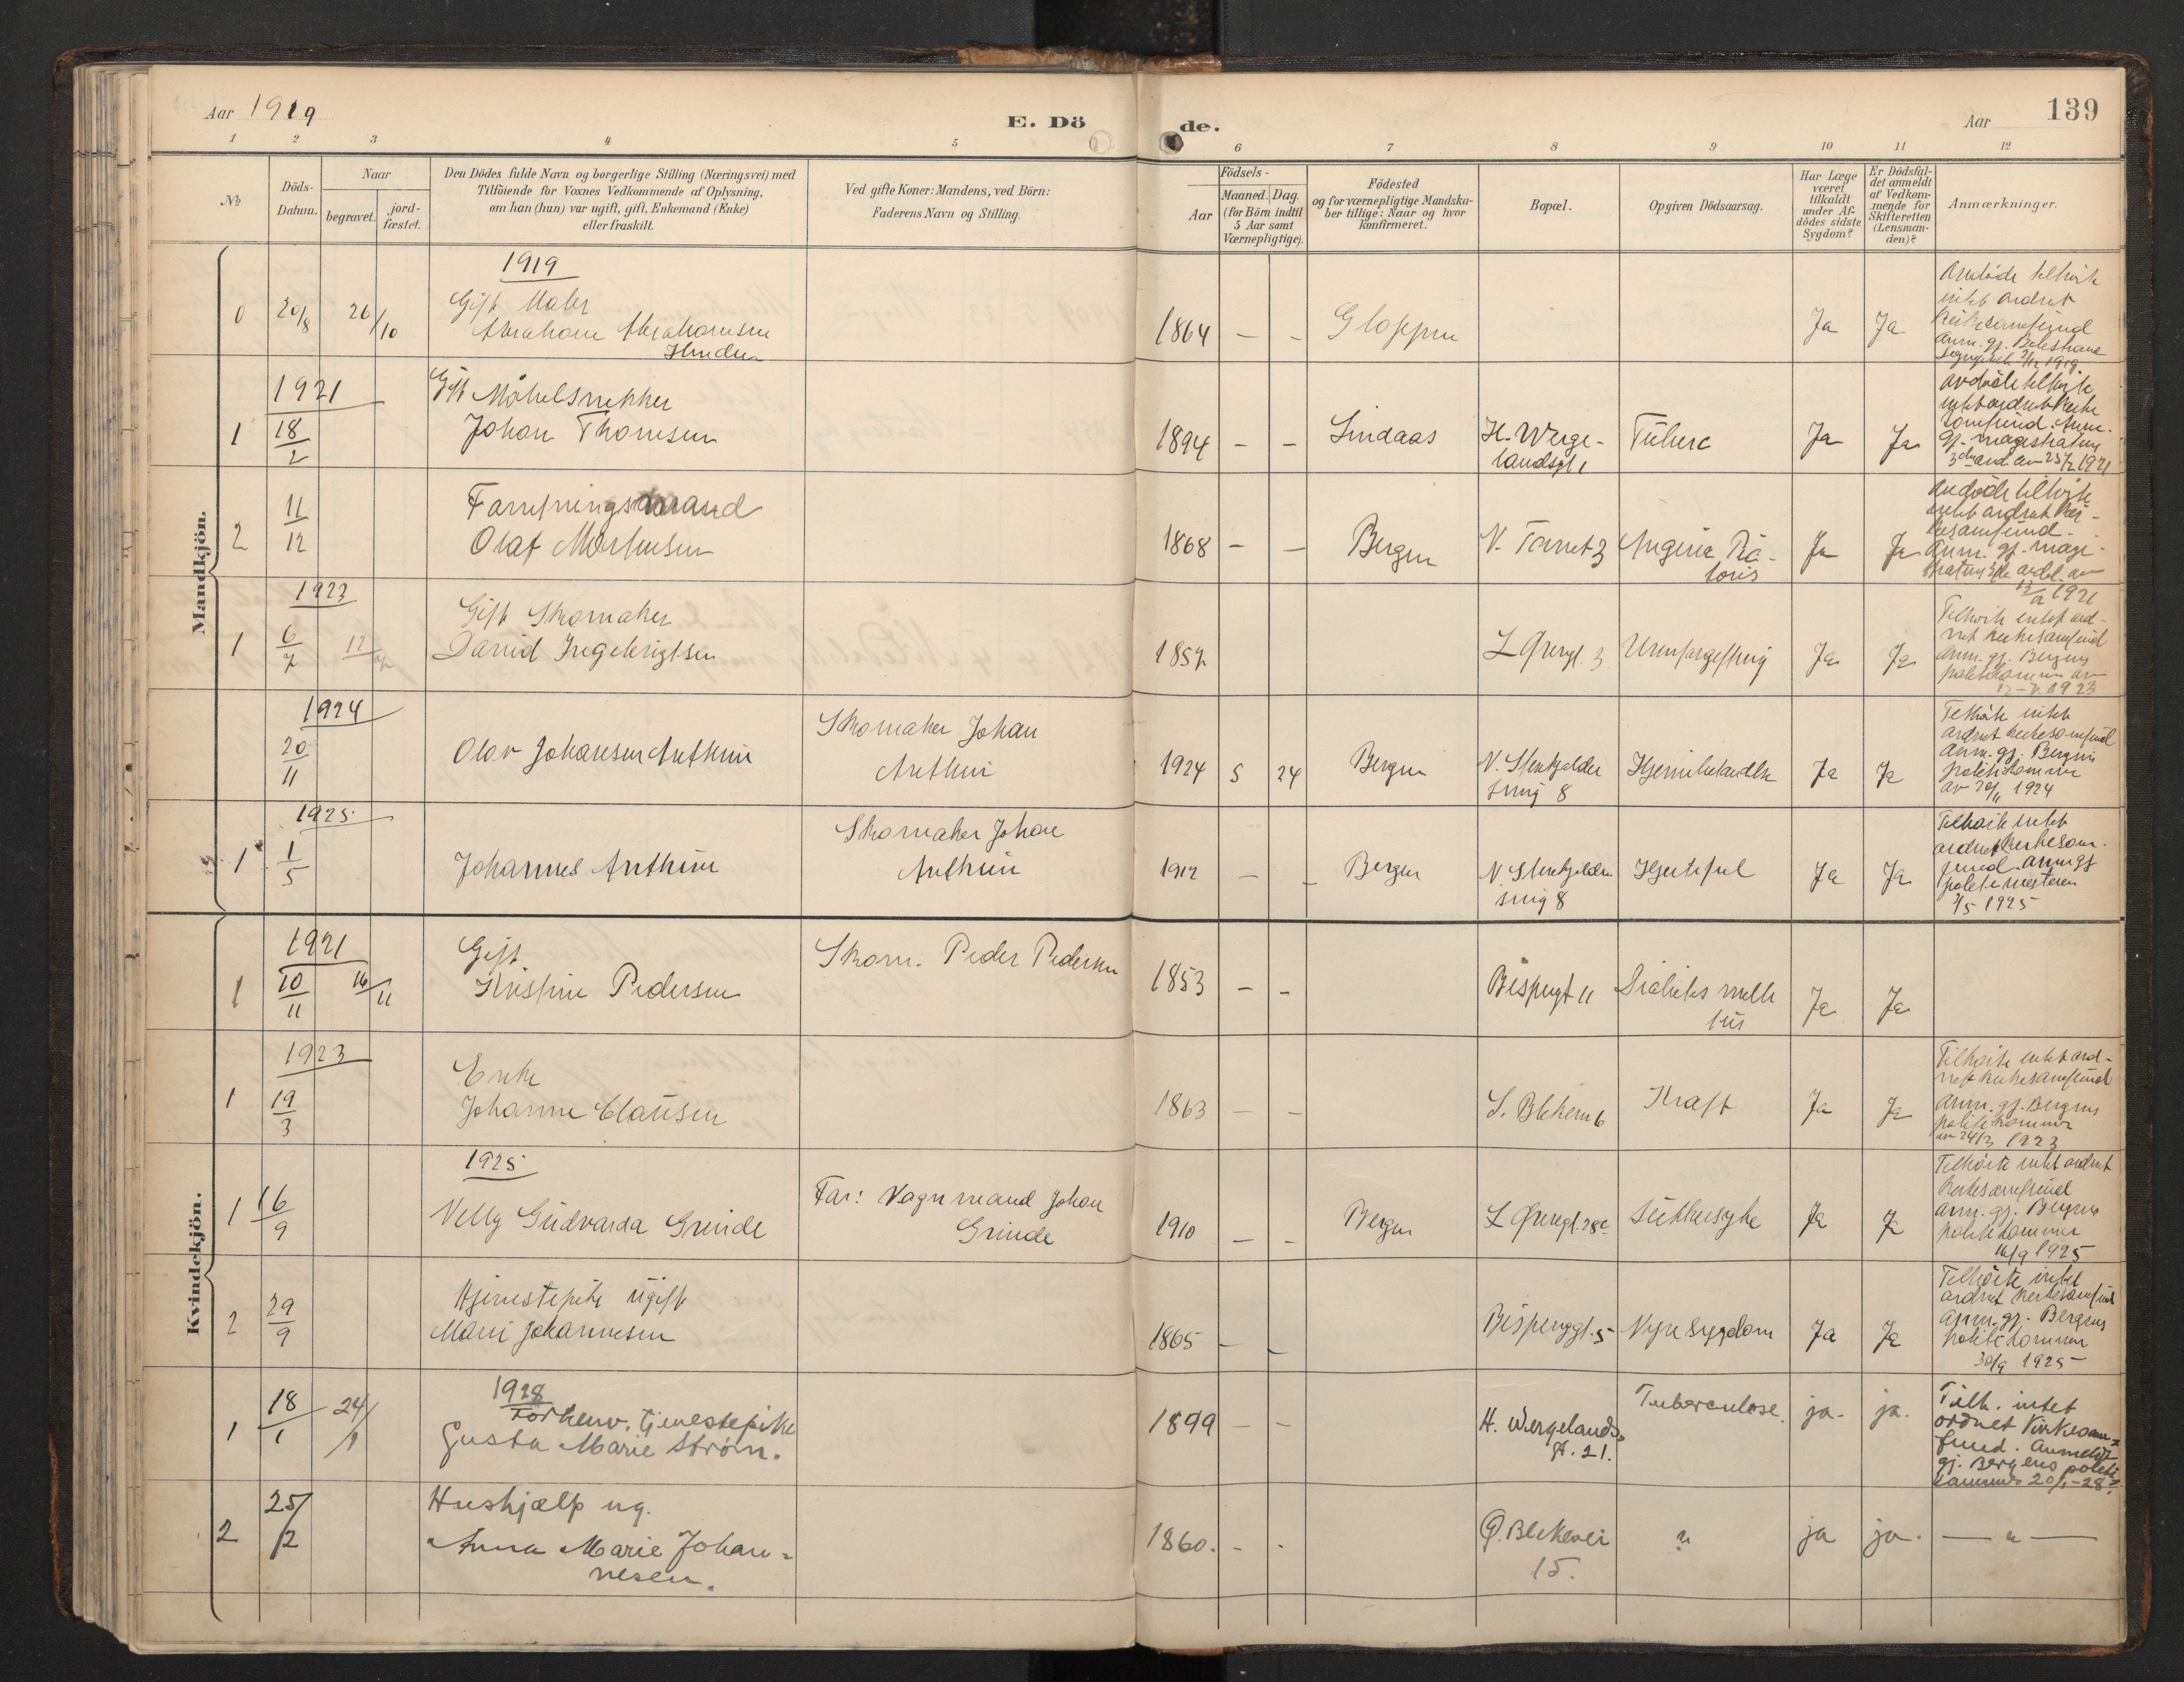 Aar 1919
E. Döde.
Aar
139
1 2 3 4 5 6 7 8 9 10 11 12
№
Döds-
Datum.
Naar
begravet.
jord-
fæstet.
Den Dödes fulde Navn og borgerlige Stilling (Næringsvei) med
Tilföiende for Voxnes Vedkommende af Oplysning,
om han (hun) var ugift, gift, Enkemand (Enke)
eller fraskilt.
Ved gifte Koner: Mandens, ved Börn:
Faderens Navn og Stilling.
Födsels-
Aar
Maaned. Dag
(for Börn indtil
5 Aar samt
Værnepligtige).
Födested
og for værnepligtige Mandska-
ber tillige: Naar og hvor
konfirmeret.
Bopæl.
Opgiven Dödsaarsag.
Har Læge
været
tilkaldt
under Af-
dödes sidste
Sygdom?
Er Dödsfal-
det anmeldt
af Vedkom-
mende for
Skifteretten
(Lensman-
den)?
Anmærkninger.
Mandkjön.
1919
0 20/8 26/10
Gift Maler
Abraham Abrahamsen
1864 - -
Ja Ja
Avdøde tilhørte
intet ordnet
kirkesamfund
Anm. gj. Balestrand
1919
1921
1 18/2
Gift Möbelsnekker
Johan Thomsen
1894 - - Lindaas
H. Werge-
landsgt 1
Tuberc
Ja Ja
avdøde tilhørte
intet ordnet kirke
samfund. Anm.
gj. magistratens
3die avd av 25/2 1921
2 11/12
Olaf Mortensen
1868 - - Bergen
V. Tornet 3
Angina Pec-
toris
Ja Ja
Avdøde tilhørte
intet ordnet kir-
kesamfund.
Anm. gj. magi-
stratens 3die avdel. av
13/12 1921
1923
1 6/7 12/7
Gift Skomaker
David Ingebrigtsen
1857
L Øvregt. 3
Urinforgiftning
Ja Ja
Tilhørte intet ord-
net kirkesamfund
Anm. gj. Bergens
politikammer av
1923
1924
20/11
Olav Johansen Anthun
Skomaker Johan
Anthun
1924 5 24 Bergen
N. Stenkjelder
smug 8
Hjernebetændelse
Ja Ja
Tilhørte intet
ordnet kirkesamfund
Anm. gj. Bergens
politikammer
av 20/11 1924
1925
1 1/5
Johannes Anthun
Skomaker Johan
Anthun
1912 - - Bergen
N. Stenkjelder
smug 8
Hjertefeil
Ja Ja
Tilhørte intet
ordnet kirkesam-
fund. anm gj
politimesteren
1925
Kvindekjön.
1921
1 10/11 16/11
Gift
Kristine Pedersen
Skom. Peder Pedersen
1853 - -
Bispengt 11
Diabetes melli
tus
Ja Ja
1923
1 19/3
Enke
Johanne Clausen
1863 - -
S. Blekevei 6
Kræft
Ja Ja
Tilhørte intet ord-
net kirkesamfund
Anm. gj. Bergens
politikammer
av 24/3 1923
1925
1 16/9
Nelly Gudvarda Grinde
Far: Vognmand Johan
Grinde
1910 - - Bergen
L Øvregt. 28c
Sukkersyke
Ja Ja
Tilhørte intet ordnet
kirkesamfund
anm. gj. Bergens
politikammer
16/9 1925
2 29/9
Tjenestepike ugift
Mari Johannesen
1865 - -
Bispenggt. 5
Nyre sygdom
Ja Ja
Tilhørte intet
ordnet kirkesamfund
anm. gj. Bergens
politikammer
30/9 1925
1928
1 18/1 24/1
Forhenv. tjenestepike
Gusta Marie Strøm.
1899 - -
H. Wergelands-
gt. 21.
Tuberculose.
ja. ja.
Tilh. intet
ordnet kirkesam-
fund. Anmeldt
gj. Bergens politi-
kammer 20/1-28.
2 25/2
Hushjælp ug.
Anna Marie Johan-
nesen.
1860. - -
Ø. Blekevei
15.
"
ja ja.
— " —